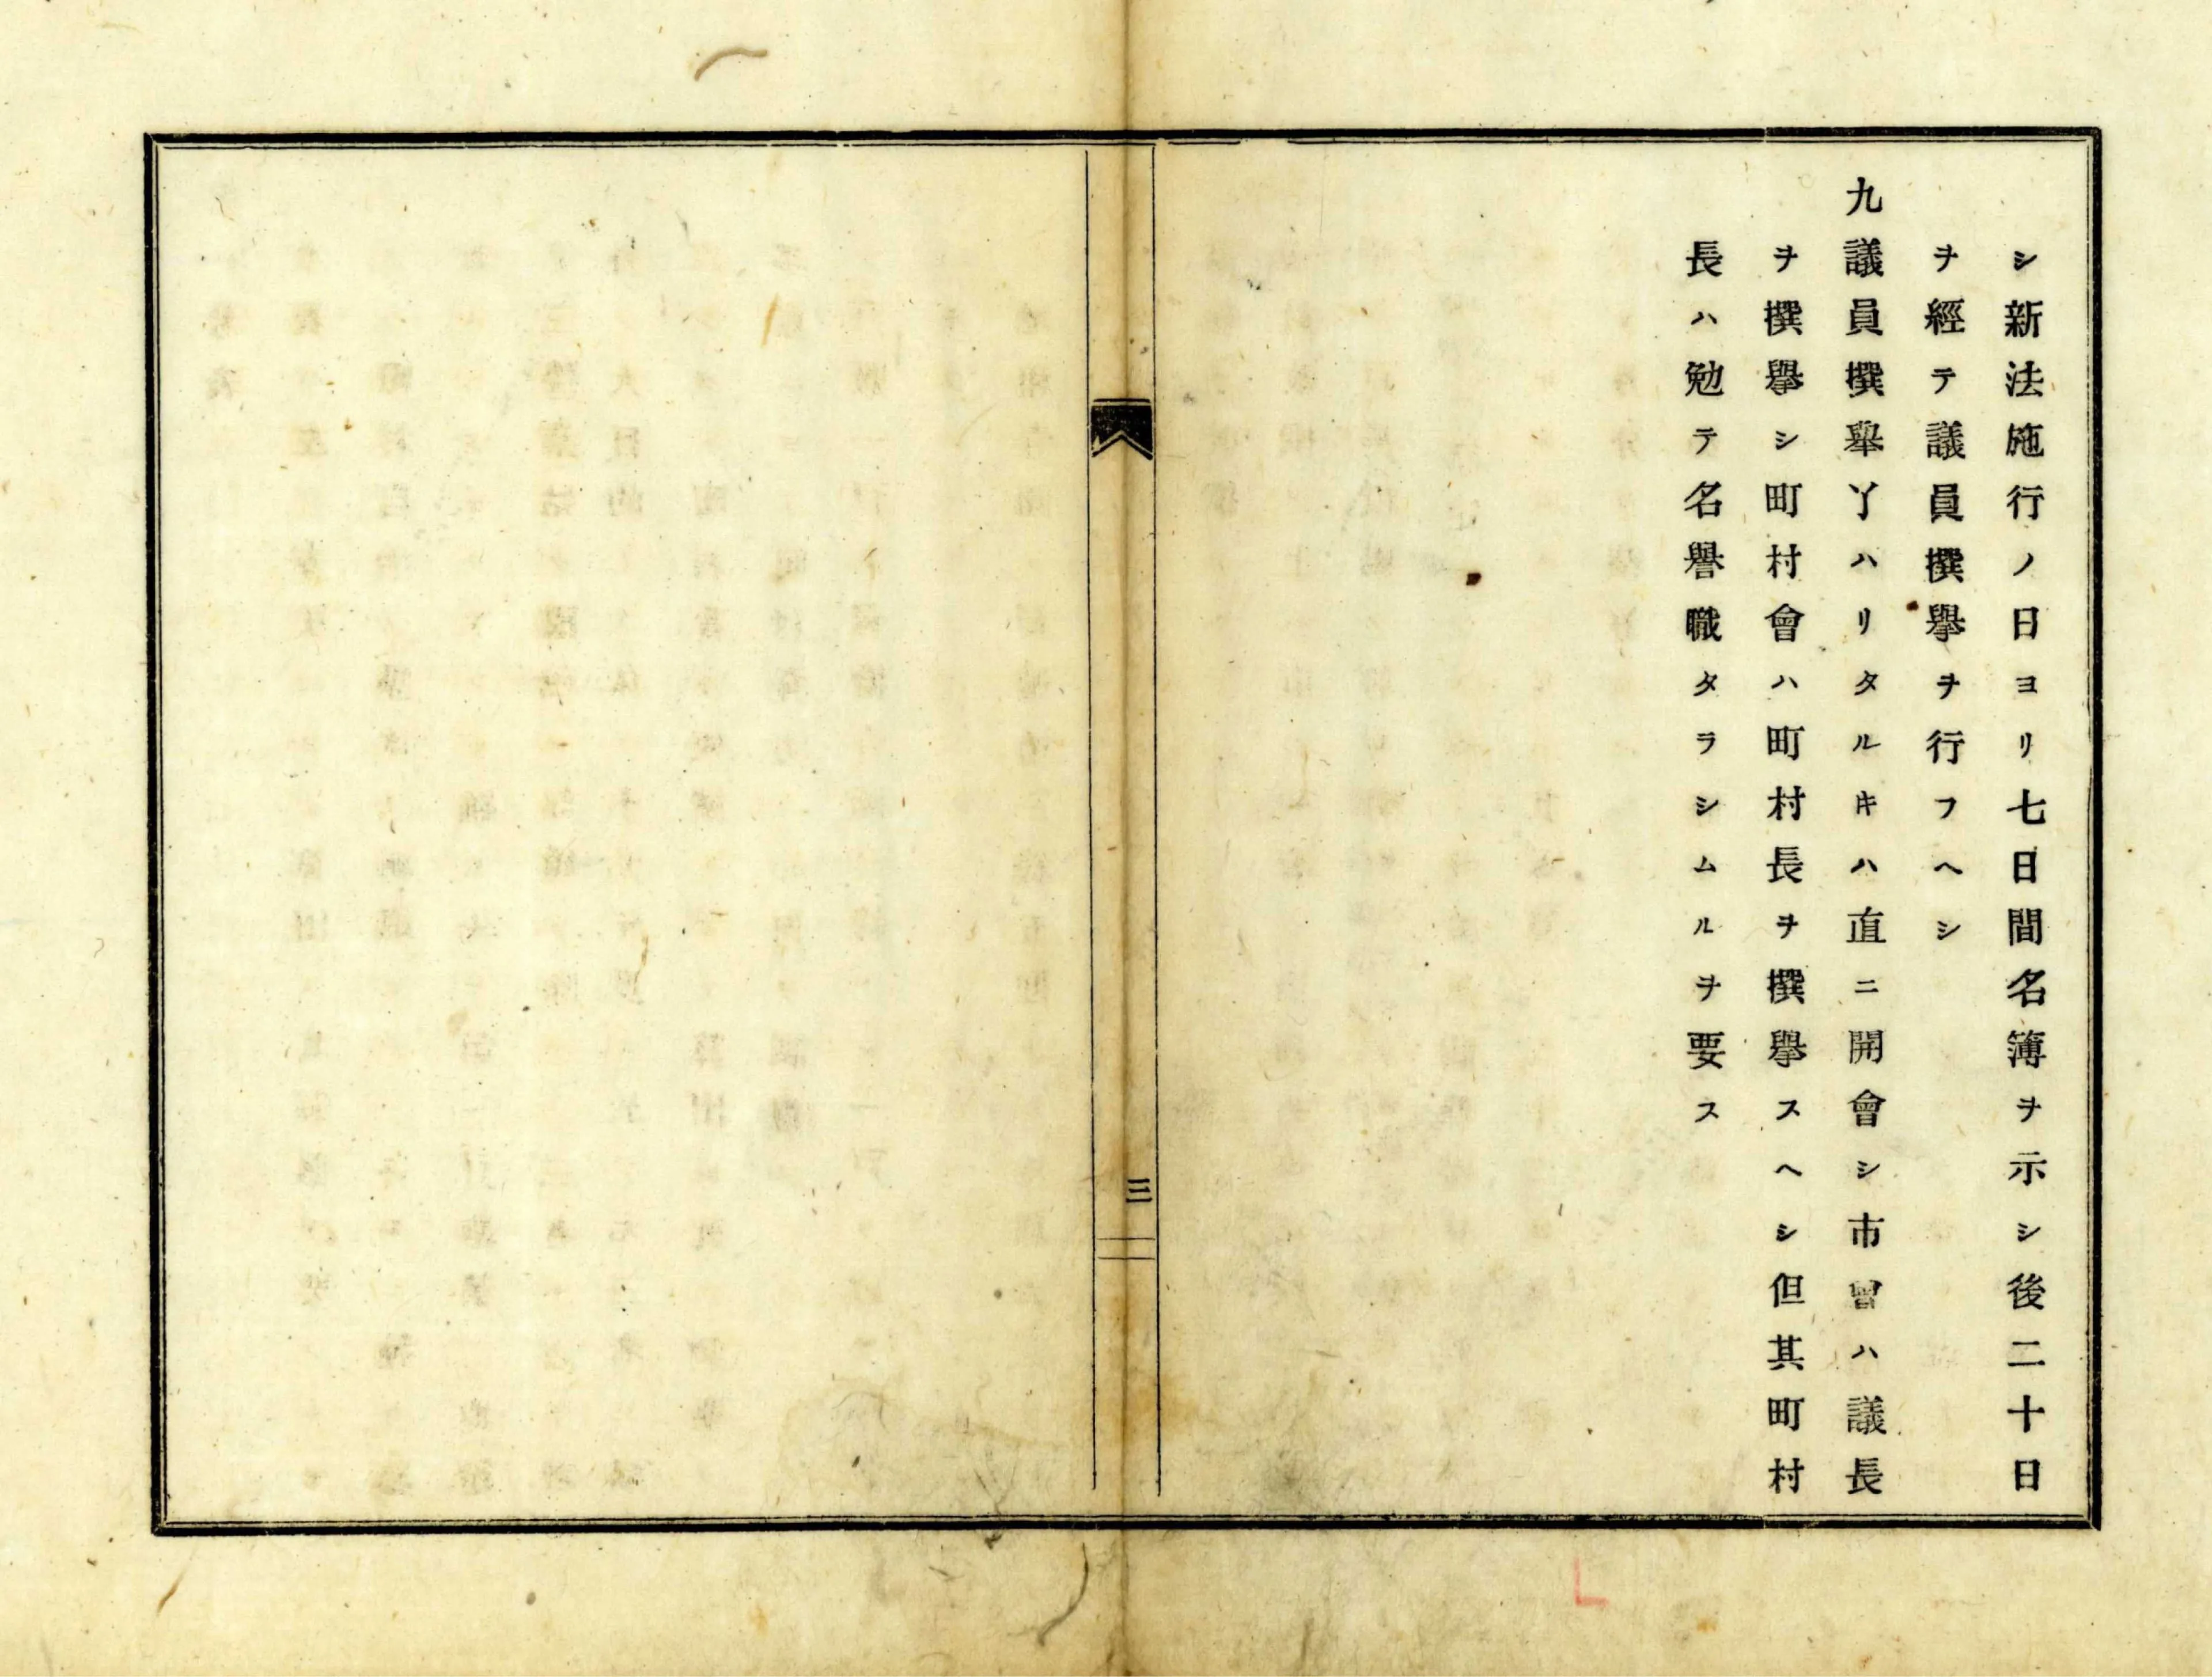 シ新法施行ノ日ヨリ七日間名簿ヲ示シ後二十日
ヲ經テ議員撰擧ヲ行フヘシ
九議員撰擧丫ハリタルキハ直ニ開會シ市會ハ議長
ヲ撰擧シ町村會ハ町村長ヲ撰擧スヘシ但其町村
長ハ勉テ名譽職タラシムルヲ要ス
三